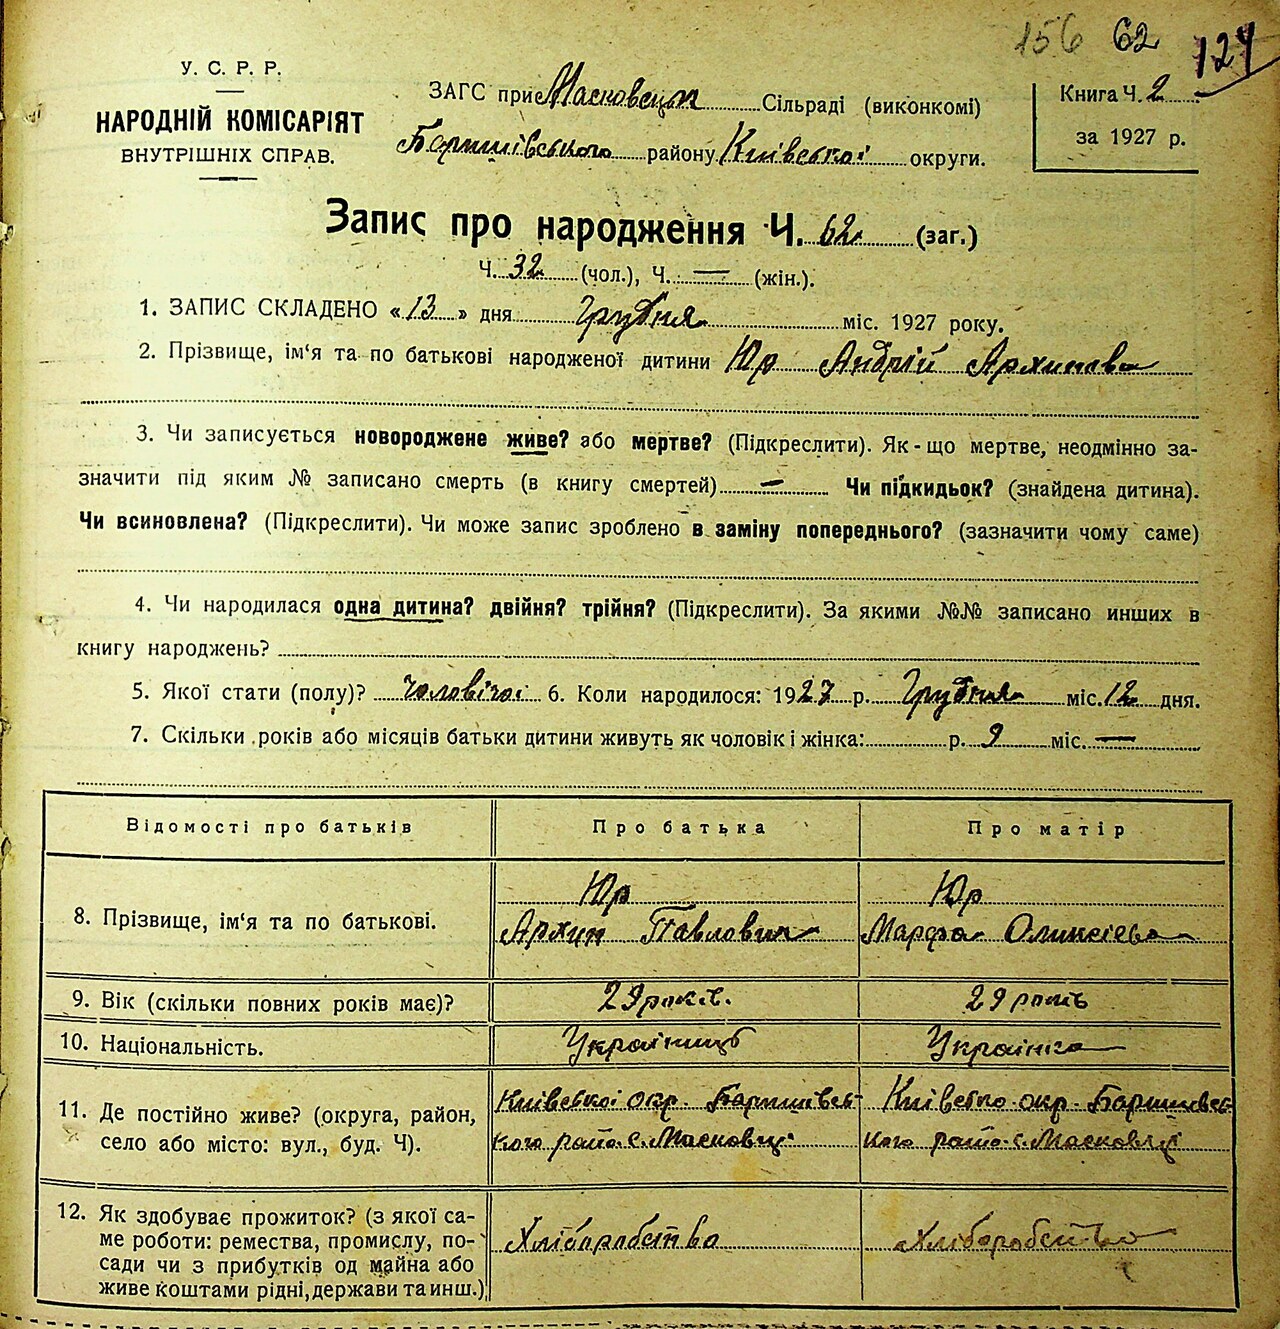 156 62 124
У. С. Р. Р.
НАРОДНІЙ КОМІСАРІЯТ
ВНУТРІШНІХ СПРАВ.
ЗАГС при Масковецькій Сільраді (виконкомі)
Баришівського району Київської округи.
Книга Ч. 2
за 1927 р.
Запис про народження Ч. 62 (заг.)
Ч. 32 (чол.), Ч. — (жін.).
1. ЗАПИС СКЛАДЕНО «13» дня Грудня міс. 1927 року.
2. Прізвище, ім‘я та по батькові народженої дитини Юр Андрій Архипова
3. Чи записується новороджене живе? або мертве? (Підкреслити). Як-що мертве, неодмінно за-
значити під яким № записано смерть (в книгу смертей) — Чи підкидьок? (знайдена дитина).
Чи всиновлена? (Підкреслити). Чи може запис зроблено в заміну попереднього? (зазначити чому саме)
4. Чи народилася одна дитина? двійня? трійня? (Підкреслити). За якими №№ записано инших в
книгу народжень?
5. Якої стати (полу)? чоловічої 6. Коли народилося: 1927 р. Грудня міс. 12 дня.
7. Скільки років або місяців батьки дитини живуть як чоловік і жінка: р. 9 міс. —
Відомості про батьків Про батька Про матір
8. Прізвище, ім‘я та по батькові.
Юр
Архип Павлович
Юр
Марфа Олексієва
9. Вік (скільки повних років має)? 29 років. 29 років
10. Національність. Українець Українка
11. Де постійно живе? (округа, район,
село або місто: вул., буд. Ч).
Київської окр. Баришевсь-
кого райо. с. Масковці
Київсько окр. Баришевсь
кого райо. с. Масковці
12. Як здобуває прожиток? (з якої са-
ме роботи: ремества, промислу, по-
сади чи з прибутків од майна або
живе коштами рідні, держави та инш.)
Хліборобство
Хліборобство